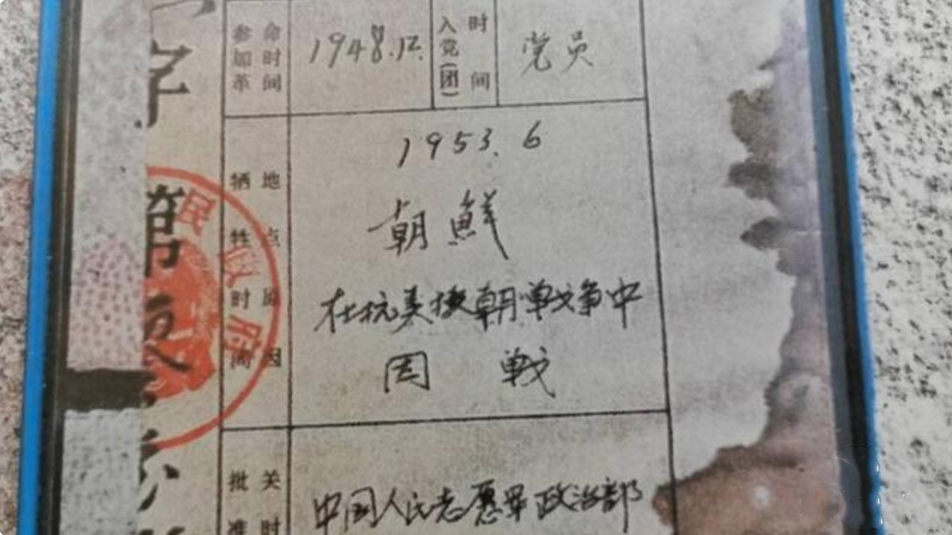 字第
参加革命时间
1948.12.
入党(团)时间
党员
牺牲时间地点原因
1953.6
朝鲜
在抗美援朝战争中
因 战
民政府
批准 关时
中国人民志愿军政治部